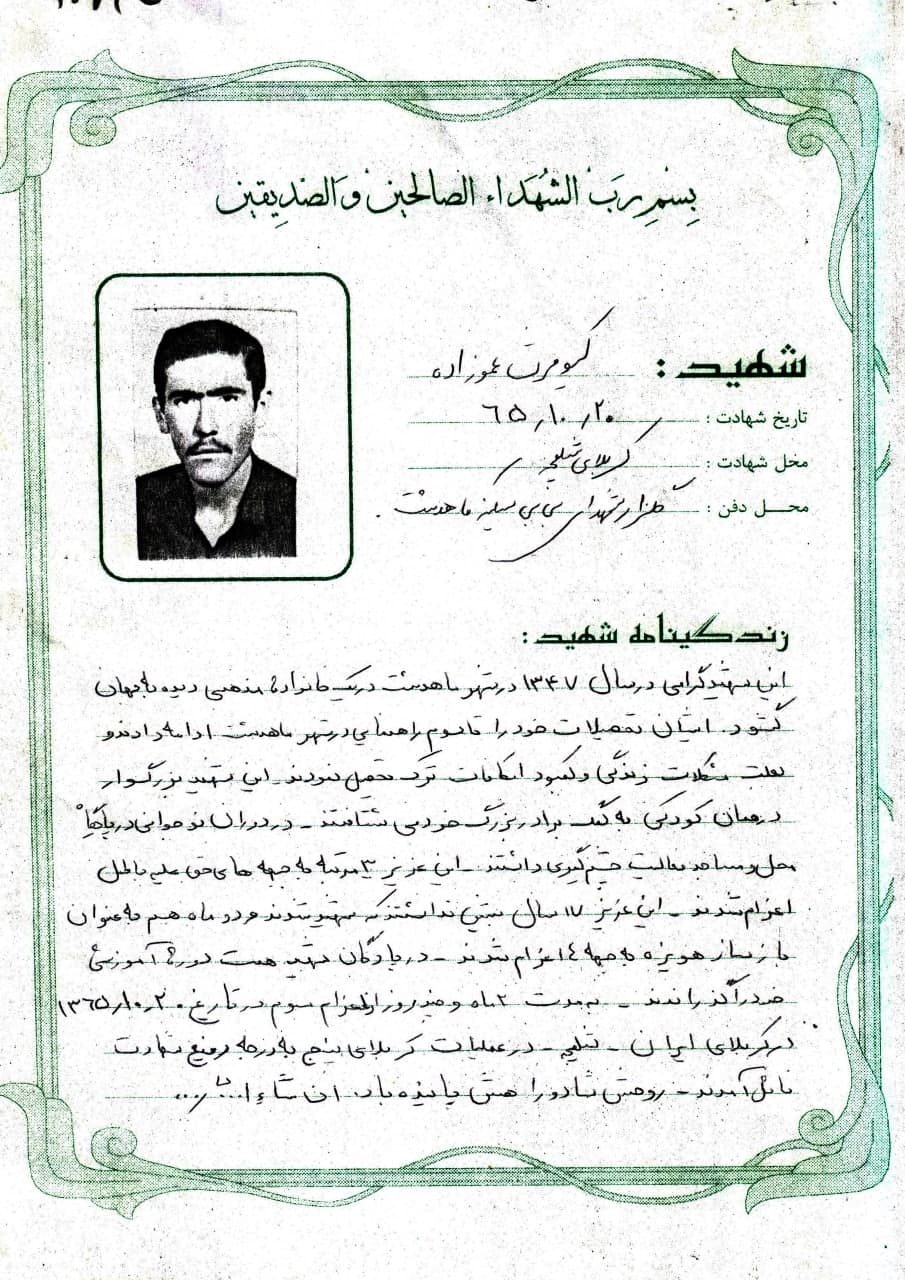 بِسْمِ رَبَ الشُهَدَاء الصالحين وَ الصدِيقين
شهید : کیومرث عموزاده
تاریخ شهادت : ۶۵٫۱۰٫۲۰
محل شهادت : کربلای شلمچه
محـل دفن : گلزار شهدای بی بی سکینه ماهدشت .
زندگینامه شهید :
این شهید گرامی در سال ۱۳۴۷ در شهر ماهدشت در یک خانواده مذهبی دیده به جهان
گشود . ایشان تحصیلات خود را تا دوم راهنمایی در شهر ماهدشت ادامه دادند و
بعلت مشکلات زندگی و کمبود امکانات ترک تحصیل نمودند _ این شهید بزرگوار
در همان کودکی به کمک برادر بزرگ خود می شتافتند _ در دوران نوجوانی در پایگاه
محل و مساجد فعالیت چشم گیری داشتند _ این عزیز ۳ مرتبه به جبهه های حق علیه باطل
اعزام شدند _ این عزیز ۱۷ سال بیش نداشتند که شهید شدند و دو ماه هم به عنوان
بازساز هویزه به جبهه اعزام شدند _ در پادگان شهید همت دوره آموزشی
خود را گذراندند _ به مدت ۲ ماه و چند روز از اعزام سوم در تاریخ ۱۳۶۵٫۱۰٫۲۰
در کربلای ایران _ شلمچه _ در عملیات کربلای پنج به درجه رفیع شهادت
نائل آمدند _ روحش شاد و راهش پاینده باد . ان شاء ا...